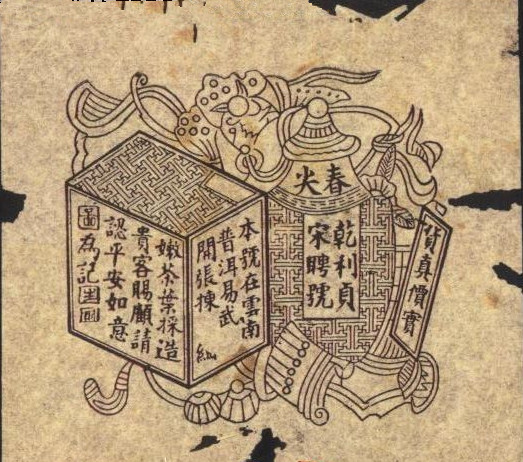 春尖
乾利貞
宋聘號
貨真價實
本號在雲南
普洱易武
開張揀
嫩茶葉採造
貴客賜顧請
認平安如意
圖為記